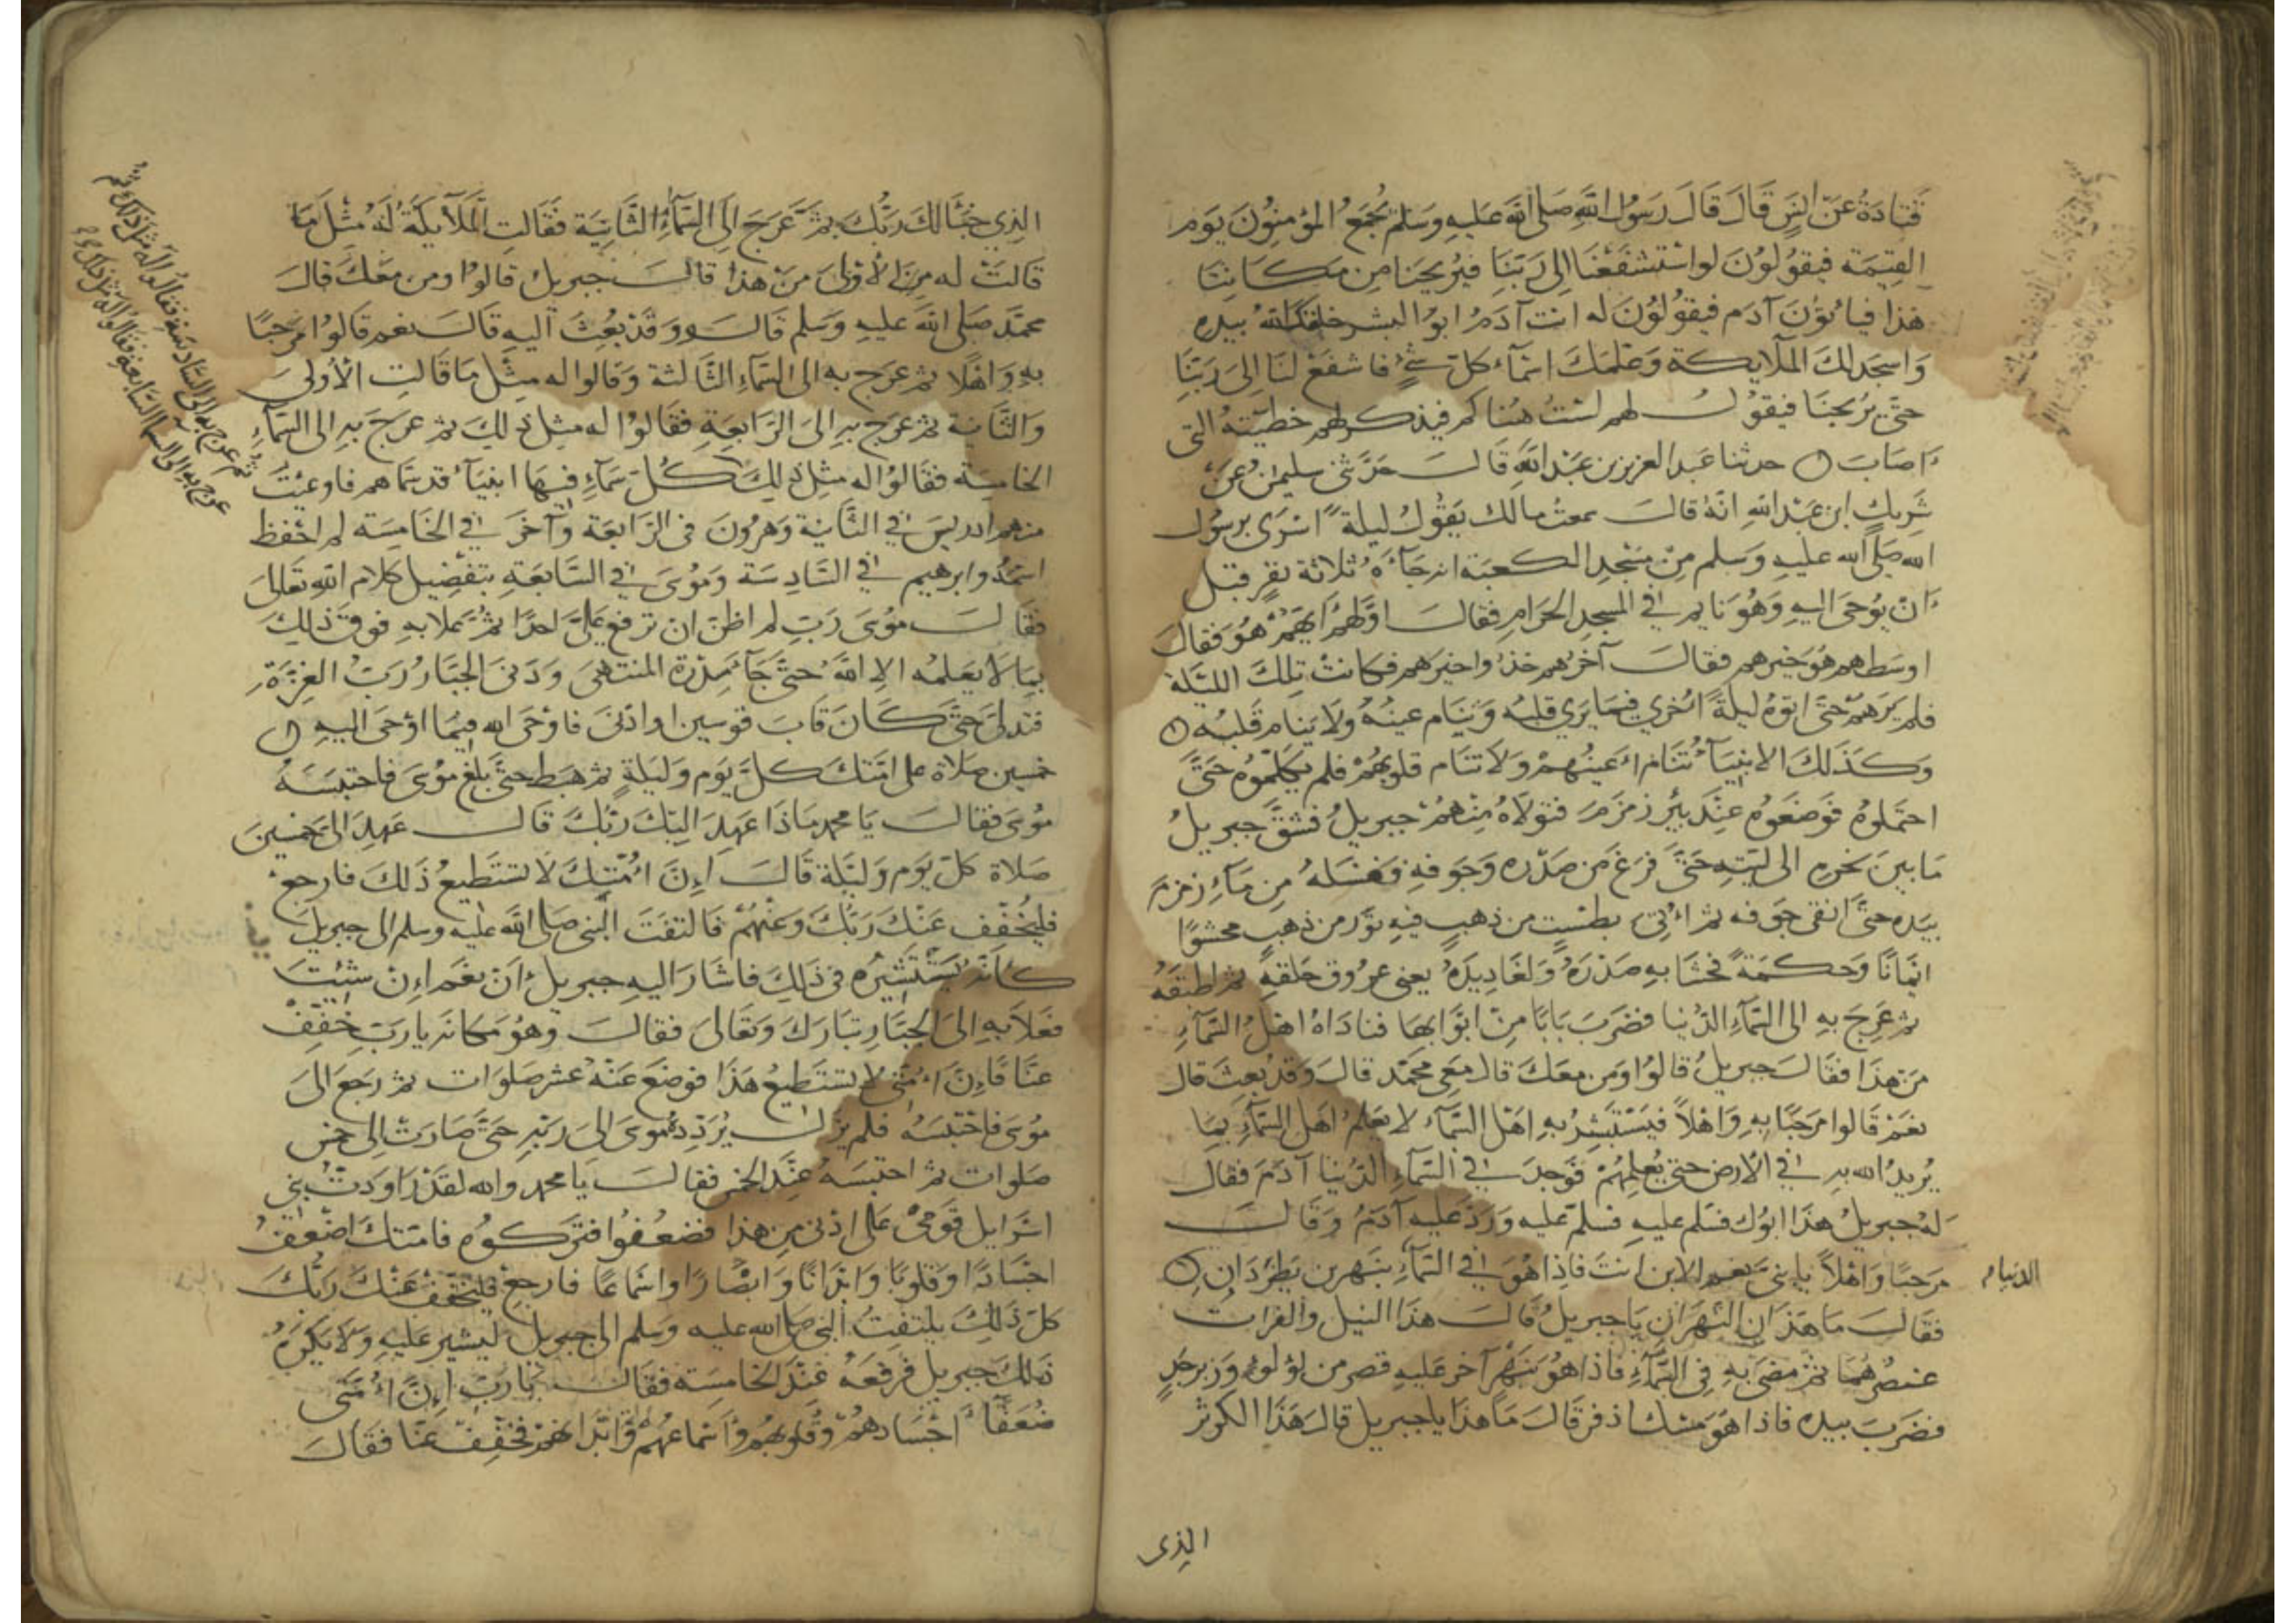 قَتَادَةُ عَنْ أنَسٍ قَالَ قَالَ رَسُولُ اللهِ صَلى الله عَليهِ وَسَلم يُجْمَعُ المؤمِنُونَ يَوم
القِيٰمَة فيقوُلوُنَ لو اسْتَشفَعْنَا إلى رَبّنَا فيُريحنا من مَكَانِنَا
هٰذا فيأتوُنَ آدَم فيقوُلوُنَ له انت آدَمُ ابوُ البشر خلقك اللهُ بيده
وَاسجَد لكَ الملآيكة وَعَلمَكَ اسمآء كلّ شئٍ فاشفَعْ لنَا إلى رَبّنَا
حتّى يُريحنَا فيقوُلُ لهم لسْتُ هُنٰاكم فيذكر لهم خطيئتهُ التى
أصَابَ حدثنا عَبد العزيز بن عَبْد اللهِ قَالَ حَدّثنى سليمٰنُ عَنْ
شَرِيك ابن عَبْد اللهِ انّهُ قالَ سمعتُ مالك يَقُولُ ليلةً اسْرَى برسُول
الله صَلى الله عليهِ وَسَلم مِنْ مَسْجدِ الكعبَة انه جَآءَهُ ثلاثة نفرٍ قبل
أنْ يوُحَى اليهِ وَهُوَ نايم في المسجدِ الحَرَام فقالَ اوَّلهُمْ ايّهُمْ هُوَ فقالَ
اوسَطهم هُوَ خيرهم فقالَ آخرُهم خذوُا خيرَهم فكانتْ تلكَ الليْلة
فلم يَرَهمْ حتّى اتوهُ ليلةً اُخرى فيما يَرى قلبهُ وَتنَام عينُهُ ولا يَنام قَلبُه
وَكَذلكَ الانبيآءُ تَنَام أعينُهمْ وَلا تنَام قلوبهُمْ فلم يكلّموُه حَتّى
احتَملوُهُ فوَضَعَوُهُ عنْدَ بيْر زمزمَ فتولاهُ مِنْهمْ جبريلُ فشقّ جبريلُ
مَا بينَ نحرهِ الى لبّتهِ حَتّى فَرَغ من صَدْره وَجَوفهِ فغسَلهُ مِن مَآء زمزمَ
بيَده حتّى انقى جَوفه ثم أُتِىَ بطسْتٍ من ذهبٍ فيهِ توَر من ذهبٍ محشوًا
ايمانًا وَحكمَةً فحشَا بهِ صَدْرَهُ وَلغَادِيدَهُ يعنى عرُوق حَلقهِ ثم اطبقهُ
ثم عرجَ بهِ الى السّمآءِ الدّنيا فضَربَ بَابًا مِنْ ابوَابهَا فنادَاهُ اهْلُ السّمَآءِ
مَن هَذا فقالَ جبريلُ قالوُا وَمَن معَكَ قال مَعى محمّد قالَ وَقد بُعثَ قال
نعَمْ قالوا مرحَبًا بهِ وَاهْلاً فيَسْتبشِرُ بهِ اهْل السّمآء لا يعَلمُ اهَل السّمآءِ بما
يُريدُ الله بهِ في الأرض حتى يُعلِمَهُمْ فوَجدَ في السّمآءِ الدّنيا آدَمَ فقالَ
لهُ جبريلُ هَذا ابوُكَ فسَلم عليهِ فسَلمَ عليه وَرَدّ عَليه آدَمُ وَقالَ
مرَحبًا وَاهْلاً يا بنىّ نعم الابن انت فاِذا هُوَ في السّمآءِ بنهرين يطردَانِ
الدنيا
فقَالَ مَا هَذانِ النهرَانِ يَا جبريلُ قَالَ هذا النيل والفراتُ
عنصرهُمَا ثم مضى بهِ في السّمآءِ فاذا هُوَ بنَهْر آخر عَليهِ قصر من لؤلؤٍ وَزبرجَدٍ
فضَربَ بيده فاذا هُوَ مسْك اذفر قَالَ مَا هذا يا جبريل قالَ هَذَا الكوثر
الذى
الذِي خبَأ لكَ رَبُّكَ ثم عَرَجَ إلَى السّمَآءِ الثّانِيَة فقَالتِ المَلآيكَةُ لَهُ مثْلَ مَا
قَالَتْ له مِنَ الأولى مَنْ هَذا قالَ جبريل قالوُا ومن معَكَ قالَ
محمّد صَلى الله عليهِ وَسَلم قالَوا وَقدْ بُعِثَ اليهِ قَالَ نعم قَالوُا مَرحبًا
بهِ وَاهْلًا ثم عرَج به الى السّمآءِ الثّالثة وَقالوا له مثْل مَا قَالتِ الأولى
وَالثّانية ثم عَرَج بهِ الى الرّابعَةِ فقَالوُا له مثل ذلِكَ ثم عَرجَ بهِ الى السّمآءِ
الخامسَة فقَالوُا له مثل ذلكَ كُلّ سَمآءٍ فيهَا انبيَآءُ قد سمّاهم فاوعيْتُ
منهم ادريسَ في الثّانية وَهٰرُونَ فى الرّابعَة وَآخَرَ في الخَامِسَة لم احْفظ
اسمهُ وابرهيم في السّادِسَة وَمُوسَى في السّابعَةِ بتفضِيل كلام اللهِ تعَالى
فقَالَ موُسَى رَبّ لم اظنّ ان ترفع علَىّ احدًا ثم عَلا بهِ فوقَ ذلكَ
بمَا لا يَعلمُه إلا اللهُ حتّى جَآءَ سِدْرَة المنتهى وَدَنى الجبّارُ رَبّ العِزّةِ
فتدَلىّ حتّى كَانَ قَابَ قوسين او ادْنى فاوْحَى الله فيمَا اوْحَى اليهِ
خمسين صَلاة على امّتكَ كلّ يَوم وَليلةٍ ثم هبَط حتّى بلغ موُسَى فاحتبسَهُ
موُسَى فقالَ يَا محمد مَاذا عَهِدَ اليْكَ رَبُّكَ قَالَ عَهدَ الىّ خمسينَ
صَلاة كل يَوم وَليْلة قَالَ اِنّ أُمّتكَ لا تستَطيعُ ذَلكَ فارجع
فليُخفّف عَنْكَ رَبّكَ وَعَنْهُمْ فالتفتَ النبى صَلى الله عليه وسلم الى جبريلَ
كأنهُ يَسْتَشيرُه فى ذَلكَ فاشَارَ اليهِ جبريلُ أن نعَم اِنْ شئتَ
فعَلا بهِ اِلى الجبّار تبَارَكَ وَتعَالى فقالَ وَهُوَ مكانه يا رَبّ خفّفْ
عنّا فَاِنّ أُمّتى لا تستَطيعُ هَذا فوضَعَ عنْهُ عشر صَلوَات ثم رجَعَ الى
موُسَى فاحْتبَسَهُ فلم يزلْ يُرَدّدهُ موُسَى الى رَبّهِ حتّى صَارَتْ إلى خمس
صَلوات ثم احتبسَهُ عنْدَ الخمسِ فقالَ يَا محمد والله لقدْ رَاوَدتُ بنى
اسْرايل قومى عَلى ادْنى من هذا فضعُفوُا فترَكوُه فامّتكَ اضْعَفُ
اجْسَادًا وَقلوبًا وَابدَانًا وَابصَارًا واسْماعًا فارجعْ فليخفّفْ عَنْكَ رَبُّكَ
كل ذَلكَ يلتَفِتُ النبى صلى الله عليه وَسلم الى جبريل ليشير عَليهِ وَلا يَكرَهُ
ذلكَ جبريل فرفعَهُ عنْدَ الخامسَة فقَالَ يا رَبّ إنّ أُمّتى
ضُعَفَآءُ اجْسَادهُمْ وَقلوبهُمْ وَاسْماعهُمْ وَابدَانهمْ فخَفّفْ عنّا فقَالَ
ثم عرج به الى السّادسَةِ فقالوُا له مثل ذلك ثم
عرج بهِ الى السما السّابعَةِ فقالوُا له مثل ذلك